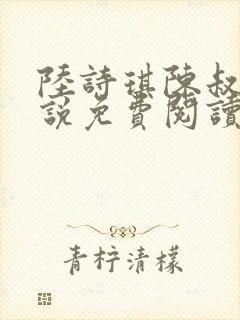 陸詩琪陳叔
說免費閱讀
青柠清檬